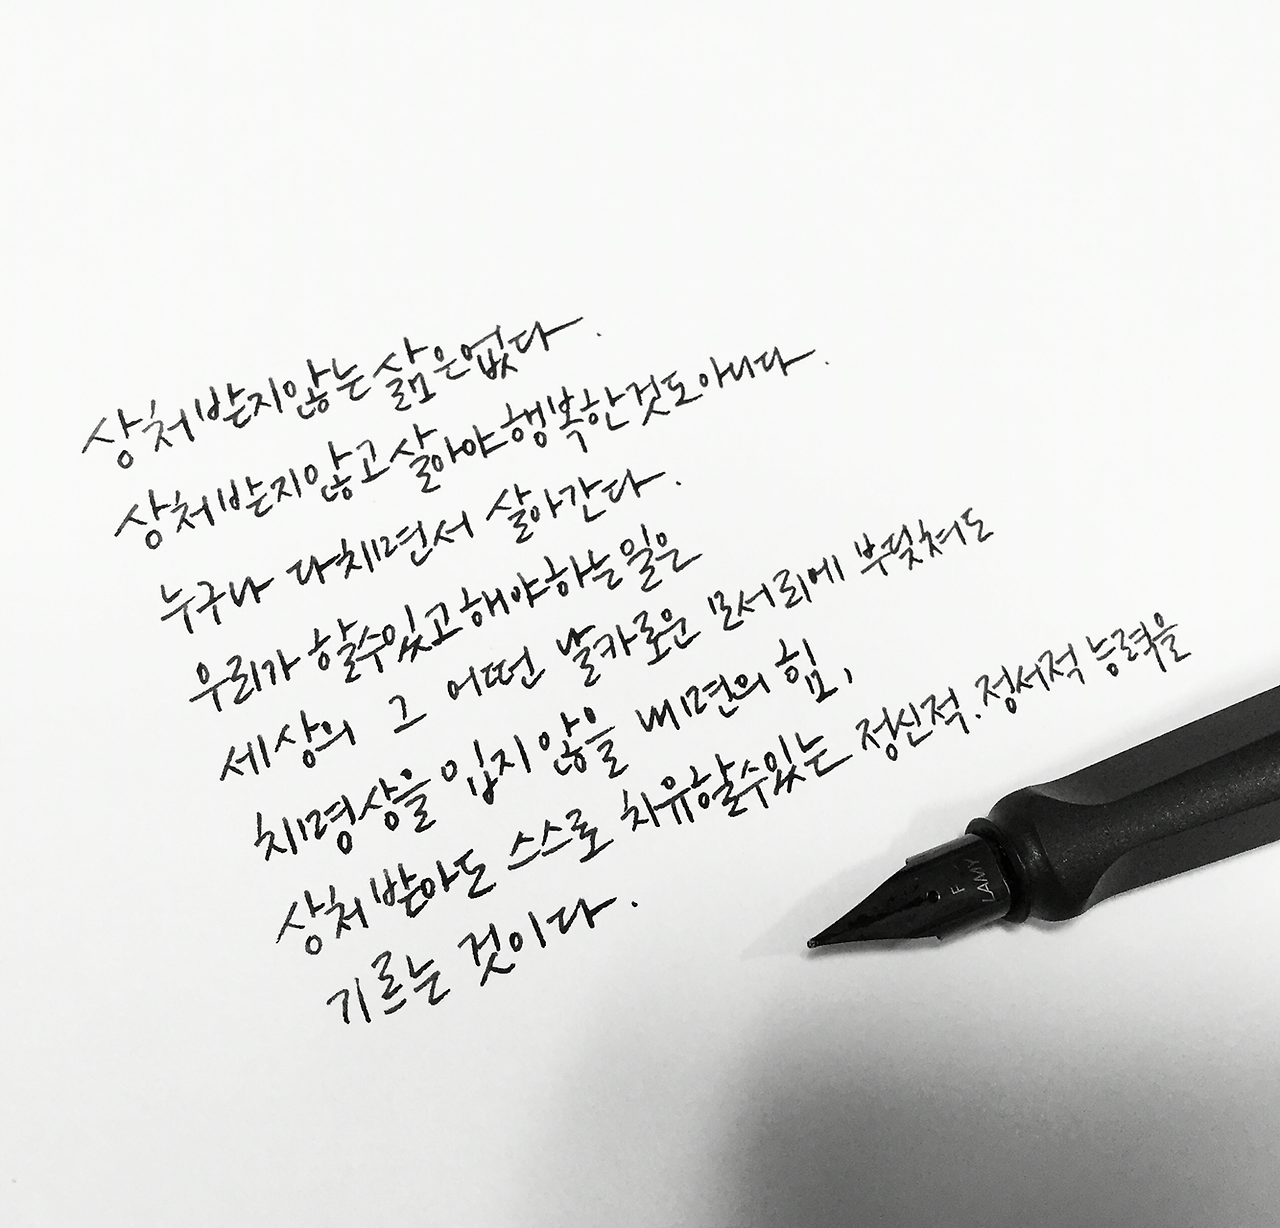 상처받지않는 삶은없다.
상처받지않고 살아야 행복한것도 아니다.
누구나 다치면서 살아간다.
우리가 할수있고 해야하는일은
세상의 그 어떤 날카로운 모서리에 부딪쳐도
치명상을 입지 않을 내면의 힘,
상처받아도 스스로 치유할수있는 정신적.정서적 능력을
기르는 것이다.
F
LAMY